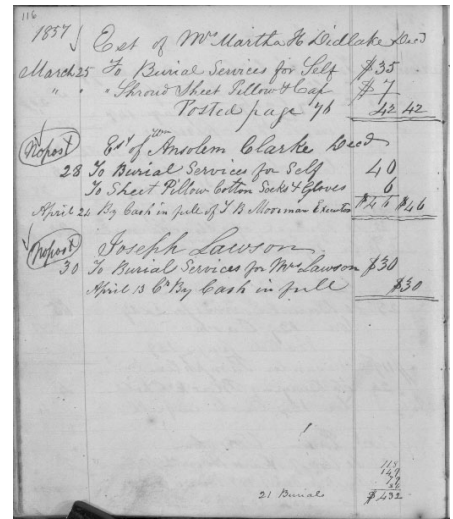 116
1857 Est of Mrs Martha H Didlake Decd
March 25 To Burial Services for Self $35
" " " Shroud Sheet Pillow & Cap $7
Posted page 76 42 42
Nopost Est of Ansolem Clarke Decd
28 To Burial Services for Self 40
To Sheet Pillow Cotton Socks & Gloves 6
April 24 By Cash in full of T B Moorman Executor $46 $46
Nopost Joseph Lawson
30 To Burial Services for Mrs Lawson $30
April 13 Cr By Cash in full $30
149
21 Burials $432